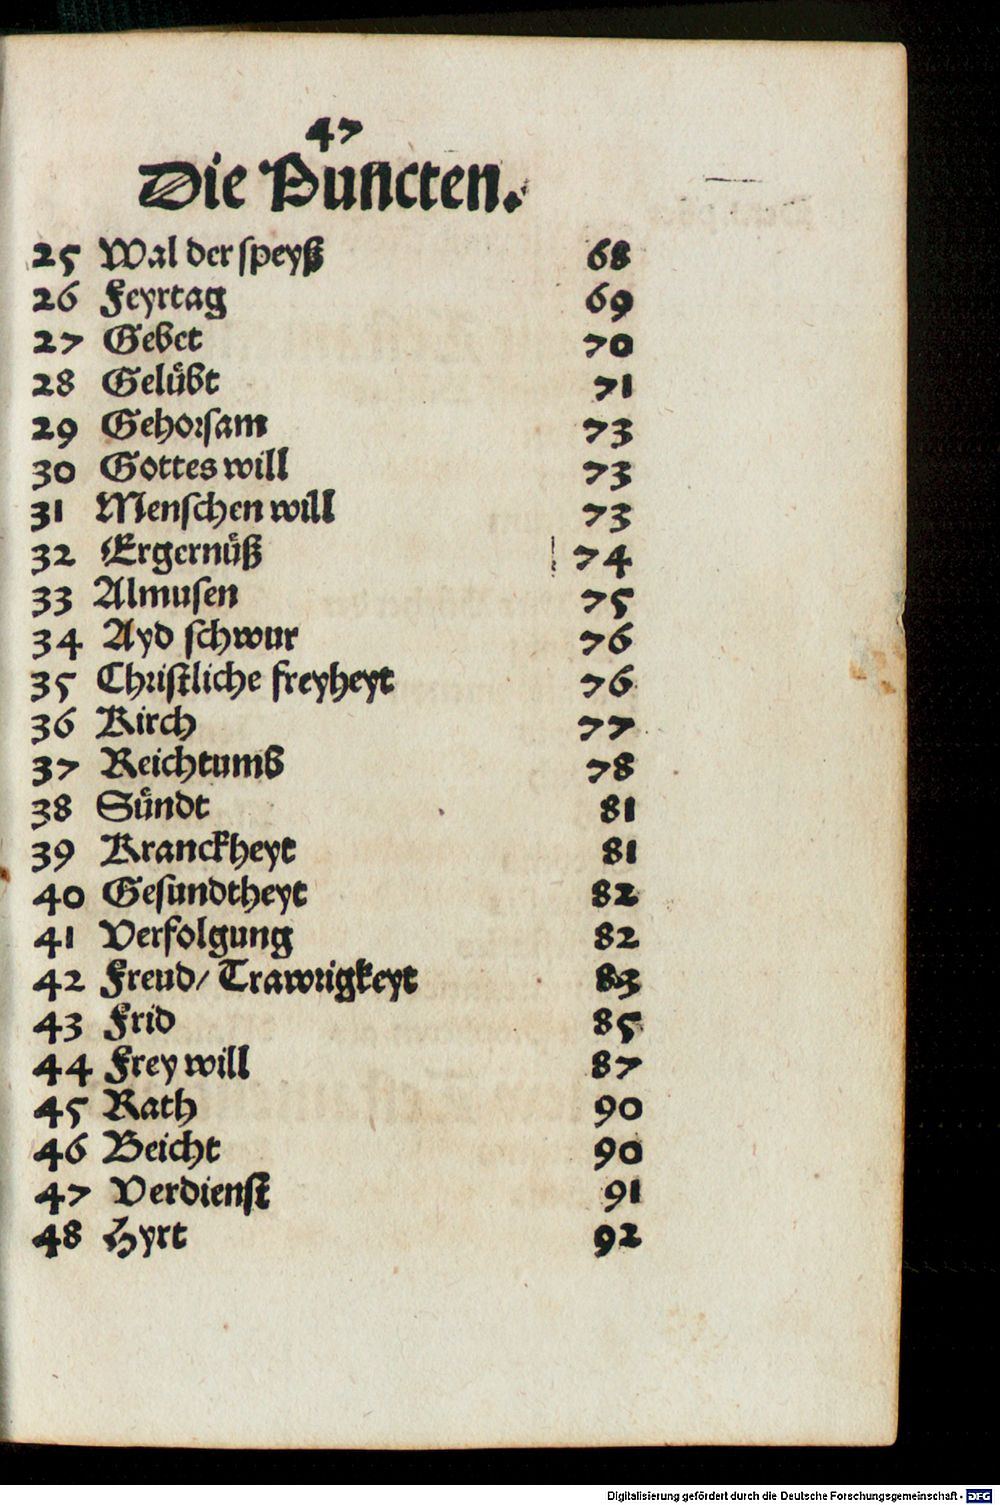 47
Die Puncten.
25 Wal der speyß 68
26 Feyrtag 69
27 Gebet 70
28 Gelübt 71
29 Gehorsam 73
30 Gottes will 73
31 Menschen will 73
32 Ergernüß 74
33 Almusen 75
34 Ayd schwur 76
35 Christliche freyheyt 76
36 Kirch 77
37 Reichtumb 78
38 Sündt 81
39 Kranckheyt 81
40 Gesundtheyt 82
41 Verfolgung 82
42 Freud/ Trawrigkeyt 83
43 Frid 85
44 Frey will 87
45 Rath 90
46 Beicht 90
47 Verdienst 91
48 Hyrt 92
Digitalisierung gefördert durch die Deutsche Forschungsgemeinschaft - DFG